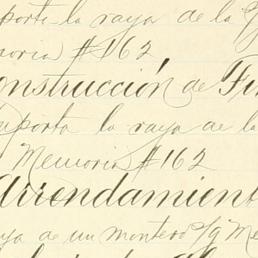 porte la raya de la
Memoria #162
onstrucción de Fin
mporta la raya de la
Memoria #162
Arrendamient
ya de un montero s/g Me